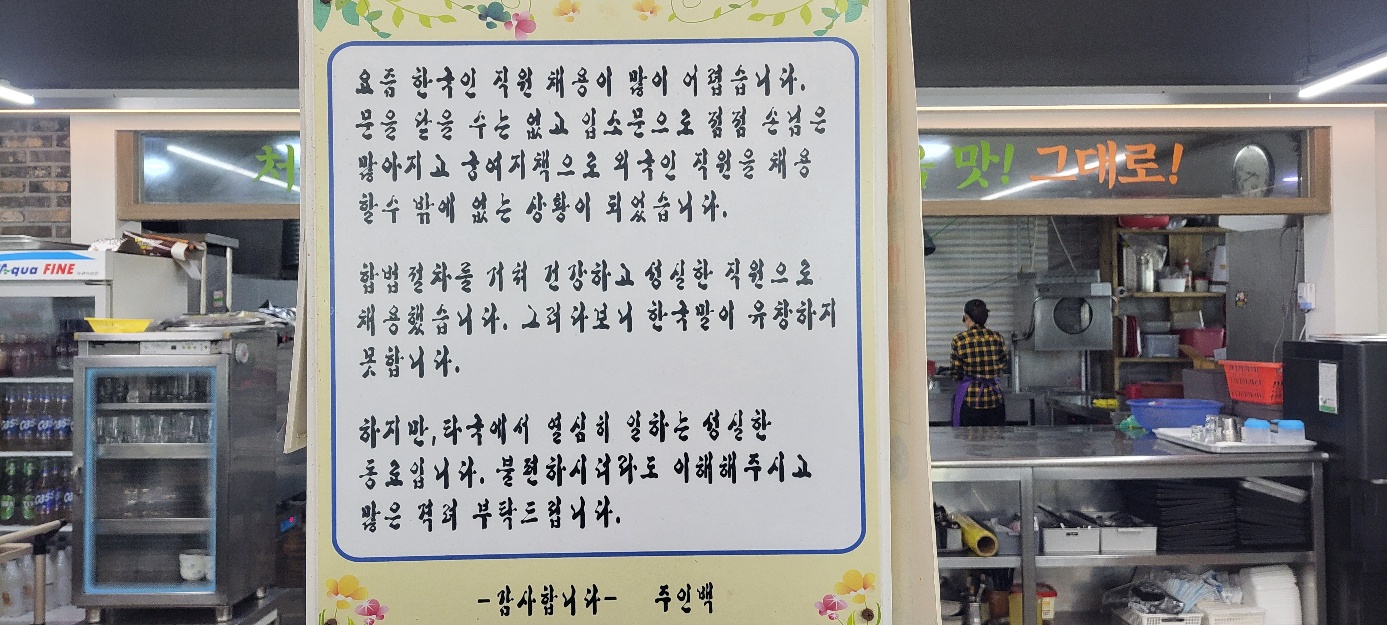 요즘 한국인 직원 채용이 많이 어렵습니다.
문을 닫을 수는 없고 입소문으로 점점 손님은
많아지고 궁여지책으로 외국인 직원을 채용
할수 밖에 없는 상황이 되었습니다.
합법절차를 거쳐 건강하고 성실한 직원으로
채용했습니다. 그러다보니 한국말이 유창하지
못합니다.
하지만, 타국에서 열심히 일하는 성실한
동료입니다. 불편하시더라도 이해해주시고
많은 격려 부탁드립니다.
-감사합니다- 주인백
처
맛! 그대로!
Aqua FINE
cass